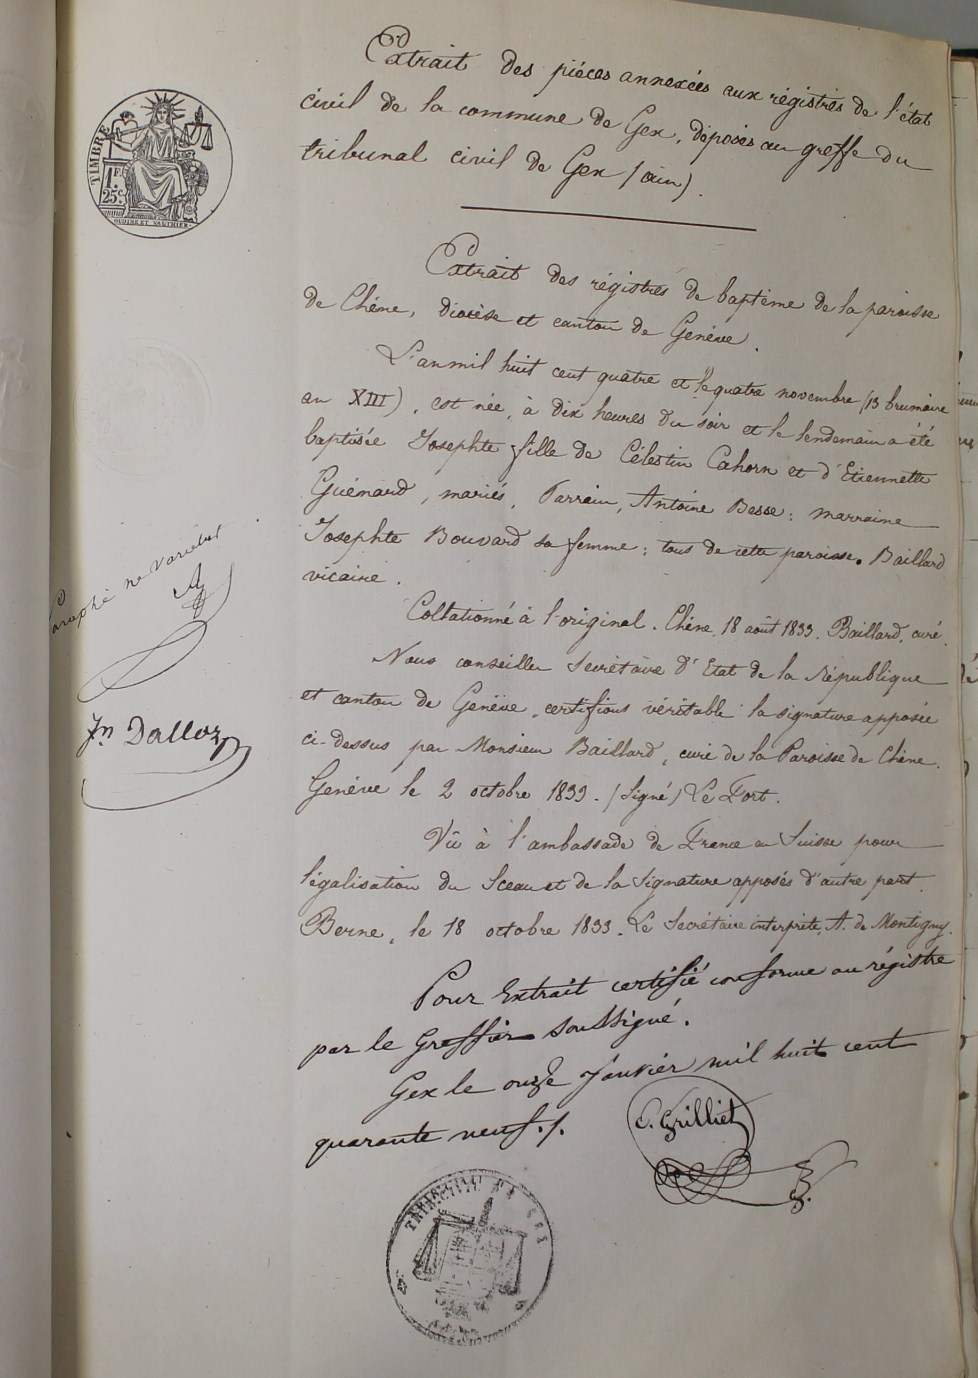 Extrait des pièces annexées aux régistres de l'état
civil de la commune de Gex, déposés au greffe du
tribunal civil de Gex (ain).
TIMBRE
1F.
25c.
OUDINE ET GAUTHIER
Extrait des régistres de baptême de la paroisse
de Chêne, diocèse et canton de Genève.
L'an mil huit cent quatre et le quatre novembre (13 brumaire
an XIII), est née, à dix heures du soir et le lendemain a été
baptisée Josephte fille de Célestin Cahorn et d'Etiennette
Guénard, mariés, Parrain, Antoine Besse; marraine
Josephte Bouvard sa femme; tous de cette paroisse. Baillard
vicaire.
Paraphé ne varietur
Jn Dalloz
Collationné à l'original. Chêne, 18 août 1833. Baillard, curé.
Nous conseiller Secrétaire d'Etat de la République
et canton de Genève, certifions véritable la signature apposée
ci-dessus par Monsieur Baillard, curé de la Paroisse de Chêne.
Genève le 2 octobre 1833. (Signé) Le Fort.
Vû à l'ambassade de France en Suisse pour
légalisation du Sceau et de la Signature apposés d'autre part.
Berne, le 18 octobre 1833. Le Secrétaire interprète, A. de Montigny.
Pour Extrait certifié conforme au régistre
par le Greffier soussigné.
Gex le onze Janvier mil huit cent
quarante neuf./.
C. Grilliet
TRIBUNAL CIVIL DE GEX